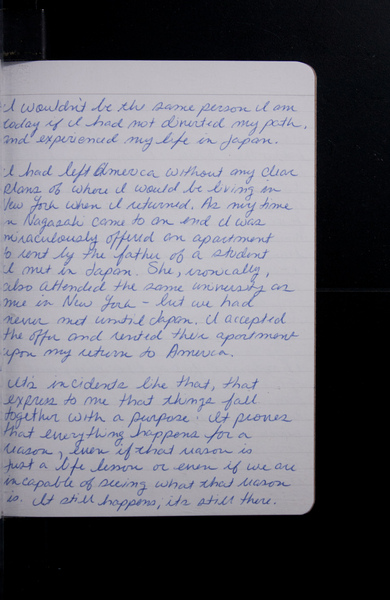 I wouldn't be the same person I am
today if I had not diverted my path,
and experienced my life in Japan.
I had left America without any clear
plans of where I would be living in
New York when I returned. As my time
in Nagasaki came to an end I was
miraculously offered an apartment
to rent by the father of a student
I met in Japan. She, ironically,
also attended the same university as
me in New York - but we had
never met until Japan. I accepted
the offer and rented their apartment
upon my return to America.
It's incidents like that, that
express to me that things fall
together with a purpose. It proves
that everything happens for a
reason, even if that reason is
just a life lesson or even if we are
incapable of seeing what that reason
is. It still happens, its still there.